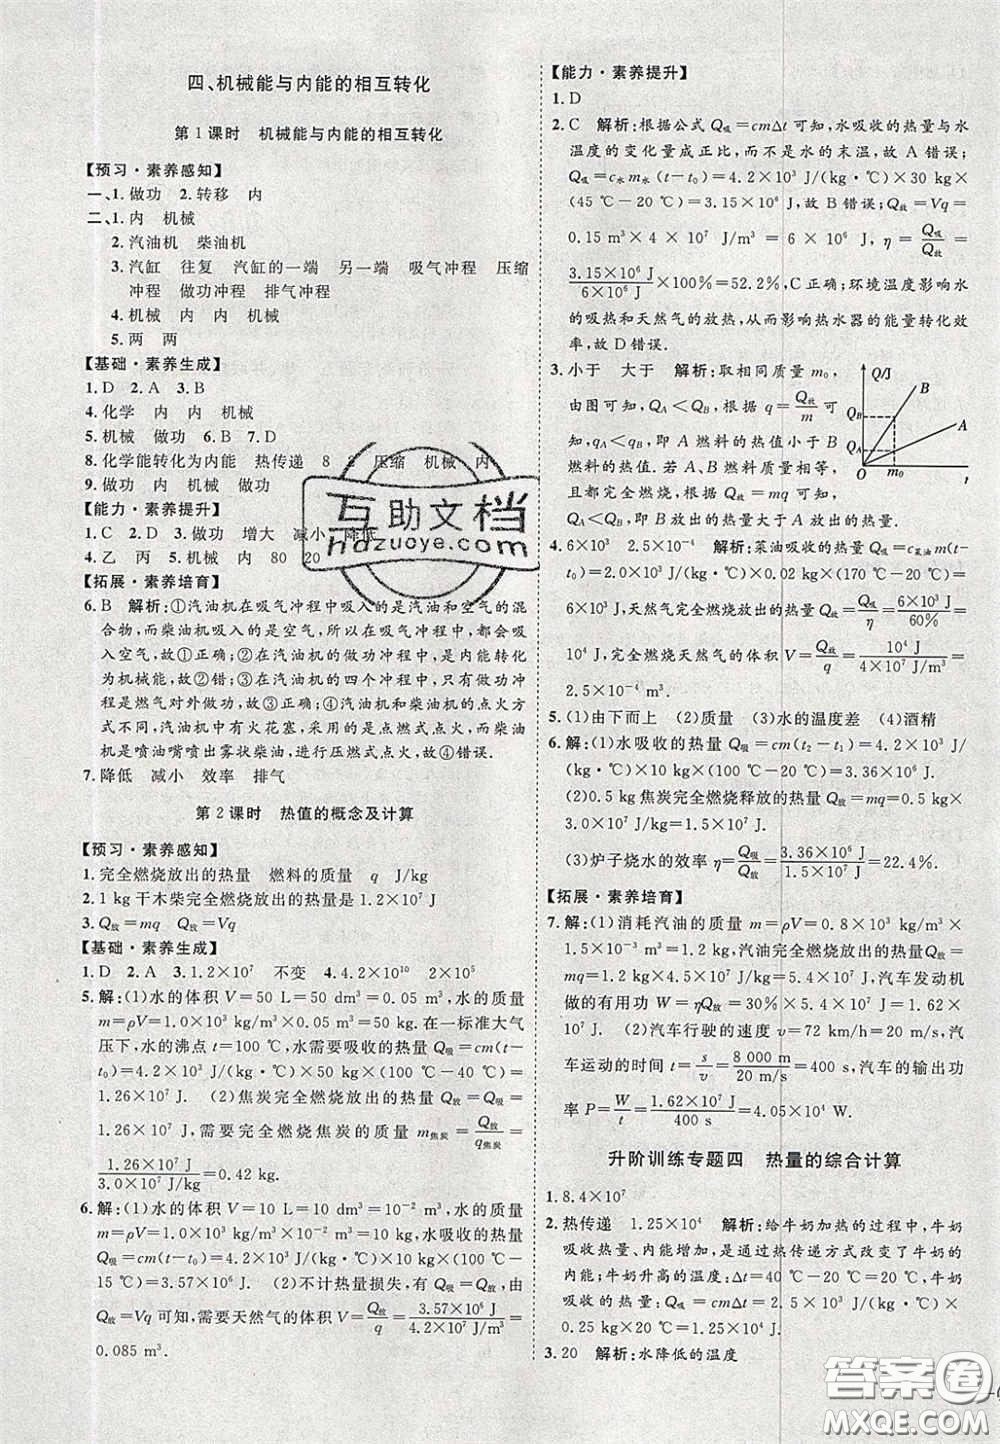 四、机械能与内能的相互转化
第1课时 机械能与内能的相互转化
【预习·素养感知】
一、1.做功 2.转移 内
二、1.内 机械
2.汽油机 柴油机
3.汽缸 往复 汽缸的一端 另一端 吸气冲程 压缩
冲程 做功冲程 排气冲程
4.机械 内 内 机械
5.两 两
【基础·素养生成】
1.D 2.A 3.B
4.化学 内 内 机械
5.机械 做功 6.B 7.D
8.化学能转化为内能 热传递 8 2 压缩 机械 内
9.做功 内 机械 做功
【能力·素养提升】
1.C 2.D 3.做功 增大 减小 降低
4.乙 丙 5.机械 内 80 20
【拓展·素养培育】
6.B 解析:①汽油机在吸气冲程中吸入的是汽油和空气的混
合物,而柴油机吸入的是空气,所以吸气冲程中,都会有空气
吸入,故①正确;②在汽油机的做功冲程中,是内能转化
为机械能,故②错;③在汽油机的四个冲程中,只有做功冲
程是燃气对外做功,故③正确;④汽油机和柴油机的点火方
式不同,汽油机中有火花塞,采用的是点燃式点火,而柴油
机是喷油嘴喷出雾状柴油,进行压燃式点火,故④错误。
7.降低 减小 效率 排气
第2课时 热值的概念及计算
【预习·素养感知】
1.完全燃烧放出的热量 燃料的质量 q J/kg
2.1 kg干木柴完全燃烧放出的热量为1.2×10⁷ J
3.Q放=mq Q放=Vq
【基础·素养生成】
1.D 2.A 3.1.2×10⁷ 不变 4.4.2×10¹⁰ 2×10⁵
5.解:(1)水的体积V=50 L=50 dm³=0.05 m³,水的质量
m=ρV=1.0×10³ kg/m³×0.05 m³=50 kg。在一标准大气
压下,水的沸点t=100 ℃,水需要吸收的热量Q吸=cm(t-
t₀)=4.2×10³ J/(kg·℃)×50 kg×(100 ℃-40 ℃)=
1.26×10⁷ J。 (2)焦炭完全燃烧放出的热量Q放=Q吸=
1.26×10⁷ J,需要完全燃烧焦炭的质量m焦炭=Q放/q焦炭=
1.26×10⁷ J/3.0×10⁷ J/kg=0.42 kg。
6.解:(1)水的体积V=10 L=10 dm³=1×10⁻² m³,水的质量
m=ρV=1.0×10³ kg/m³×1×10⁻² m³=10 kg,水吸收的热量
Q吸=cm(t-t₀)=4.2×10³ J/(kg·℃)×10 kg×(100 ℃-
15 ℃)=3.57×10⁶ J。 (2)不计热量损失,有Q吸=Q放,由
Q放=Vq可知,需要天然气的体积V=Q放/q=3.57×10⁶ J/4.2×10⁷ J/m³=
0.085 m³。
【能力·素养提升】
1.D
2.C 解析:根据公式Q吸=cmΔt可知,水吸收的热量与水
温度的变化量成正比,而不是水的末温,故A错误;
Q吸=c水m水(t-t₀)=4.2×10³ J/(kg·℃)×30 kg×
(45 ℃-20 ℃)=3.15×10⁶ J,故B错误;Q放=Vq=
0.15 m³×4×10⁷ J/m³=6×10⁶ J,η=Q吸/Q放=
3.15×10⁶ J/6×10⁶ J×100%=52.2%,C正确;环境温度影响水
的吸热和天然气的放热,从而影响热水器的能量转化效
率,故D错误。
3.小于 大于 解析:取相同质量m₀,
由图可知,QA<QB,根据q=Q放/m可
知,qA<qB,即A燃料的热值小于B
燃料的热值。若A、B燃料质量相等,
且都完全燃烧,根据Q放=mq可知,B
燃料放出的热量大于A放出的热量。
Q/J
B
A
QB
QA
O
m₀
4.6×10³ 2.5×10⁻⁴ 解析:菜油吸收的热量Q吸=c菜油m(t-
t₀)=2.0×10³ J/(kg·℃)×0.02 kg×(170 ℃-20 ℃)=
6×10³ J,天然气完全燃烧放出的热量Q放=Q吸/η=6×10³ J/60%=
10⁴ J,完全燃烧天然气的体积V=Q放/q=10⁴ J/4×10⁷ J/m³=
2.5×10⁻⁴ m³。
5.(1)由下而上 (2)质量 (3)水的温度差 (4)酒精
6.解:(1)水吸收的热量Q吸=cm(t₂-t₁)=4.2×10³ J/
(2)0.5 kg焦炭完全燃烧释放的热量Q放=mq=0.5 kg×
3.0×10⁷ J/kg=1.5×10⁷ J。
(3)炉子烧水的效率η=Q吸/Q放=3.36×10⁶ J/1.5×10⁷ J=22.4%。
【拓展·素养培育】
7.解:(1)消耗汽油的质量m=ρV=0.8×10³ kg/m³×
1.5×10⁻³ m³=1.2 kg,汽油完全燃烧放出的热量Q放=
mq=1.2 kg×4.5×10⁷ J/kg=5.4×10⁷ J,汽车发动机
做的有用功W=ηQ放=30%×5.4×10⁷ J=1.62×
10⁷ J。 (2)汽车行驶的速度v=72 km/h=20 m/s,汽
车运动的时间t=s/v=8 000 m/20 m/s=400 s,汽车的输出功
率P=W/t=1.62×10⁷ J/400 s=4.05×10⁴ W。
升阶训练专题四 热量的综合计算
1.8.4×10⁷
2.热传递 1.25×10⁴ 解析:给牛奶加热的过程中,牛奶
吸收热量、内能增加,是通过热传递方式改变了牛奶的
内能;牛奶升高的温度:Δt=40 ℃-20 ℃=20 ℃,牛奶
吸收的热量:Q吸=cmΔt=2.5×10³ J/(kg·℃)×
0.25 kg×20 ℃=1.25×10⁴ J。
3.20 解析:水降低的温度
互助文档
hdzuoye.com
答案圈
MXQE.COM